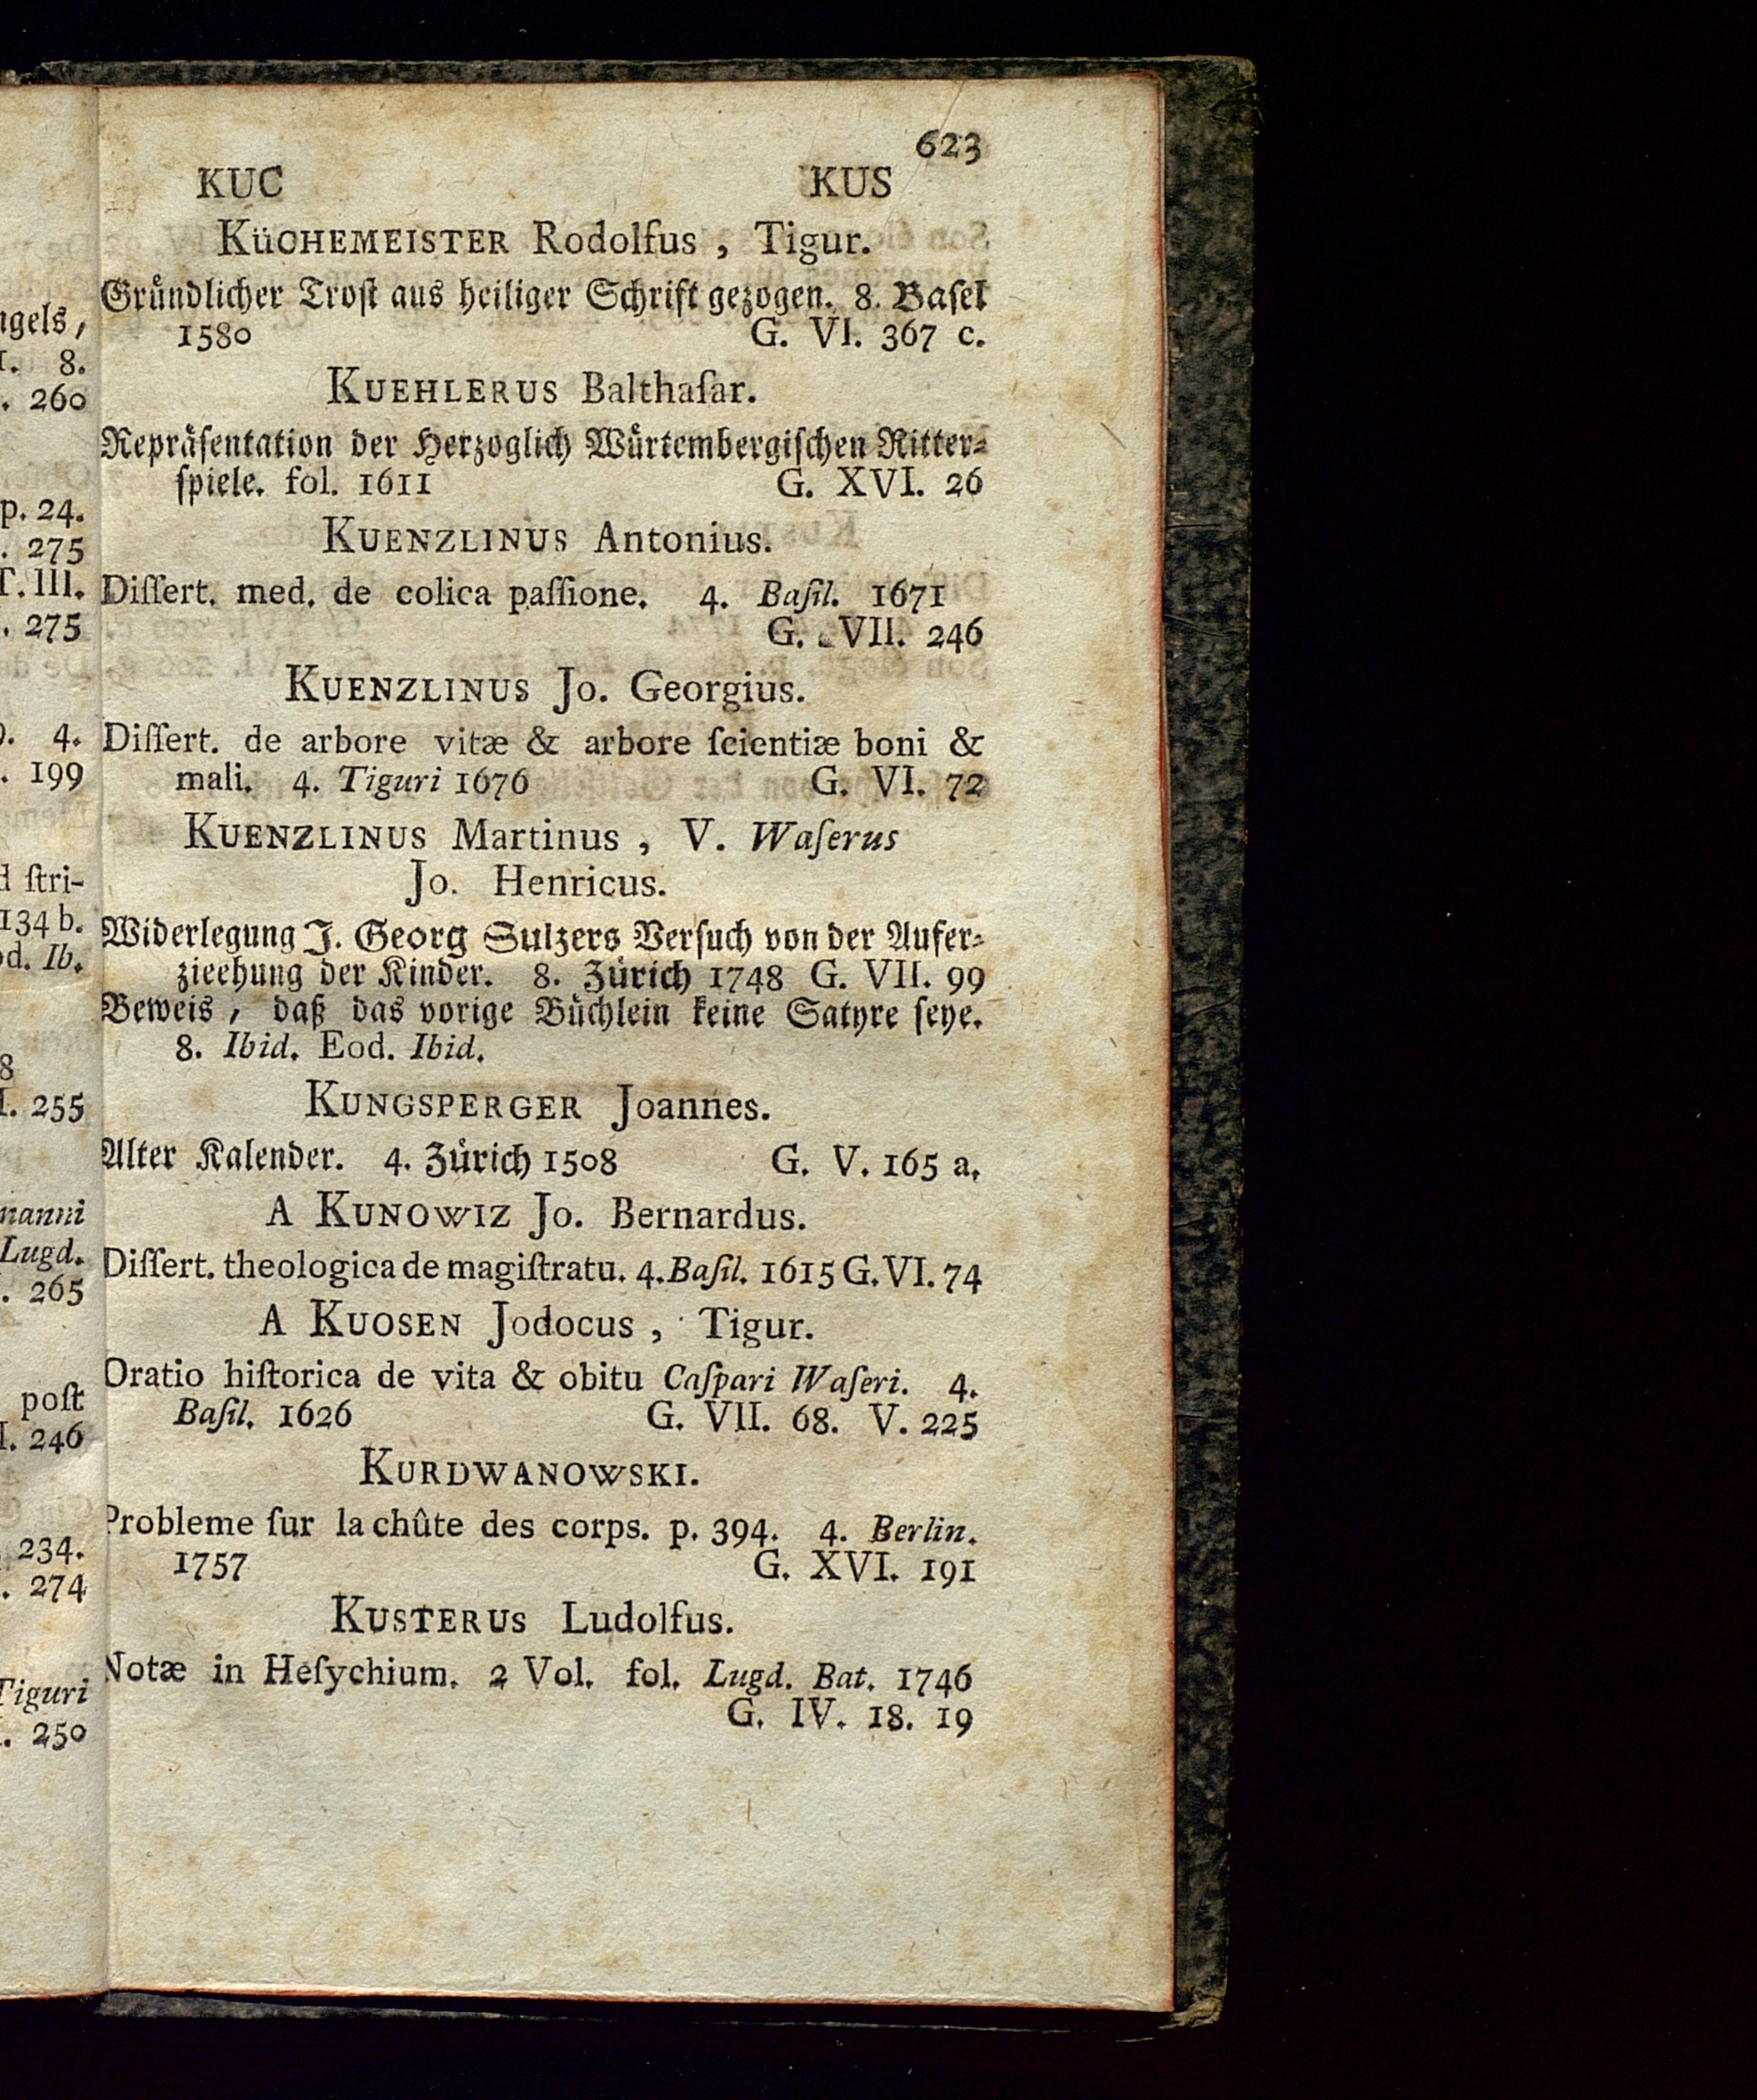 ngels,
I. 8.
. 260
p. 24.
. 275
T. III.
. 275
). 4.
. 199
d ſtri-
134 b.
od. Ib.
8
I. 255
manni
Lugd.
. 265
poſt
I. 246
234.
. 274
Tiguri
. 250
623
KUC KUS
KüCHEMEISTER Rodolfus, Tigur.
Gruͤndlicher Troſt aus heiliger Schrift gezogen. 8. Baſel
1580 G. VI. 367 c.
KUEHLERUS Balthaſar.
Repraͤſentation der Herzoglich Wuͤrtembergiſchen Ritter-
ſpiele. fol. 1611 G. XVI. 26
KUENZLINUS Antonius.
Diſſert. med. de colica paſſione. 4. Baſil. 1671
G. VII. 246
KUENZLINUS Jo. Georgius.
Diſſert. de arbore vitæ & arbore ſcientiæ boni &
mali. 4. Tiguri 1676 G. VI. 72
KUENZLINUS Martinus, V. Waſerus
Jo. Henricus.
Widerlegung J. Georg Sulzers Verſuch von der Aufer-
zieehung der Kinder. 8. Zuͤrich 1748 G. VII. 99
Beweis, daß das vorige Buͤchlein keine Satyre ſeye.
8. Ibid. Eod. Ibid.
KUNGSPERGER Joannes.
Alter Kalender. 4. Zuͤrich 1508 G. V. 165 a.
A KUNOWIZ Jo. Bernardus.
Diſſert. theologica de magiſtratu. 4. Baſil. 1615 G. VI. 74
A KUOSEN Jodocus, Tigur.
Oratio hiſtorica de vita & obitu Caſpari Waſeri. 4.
Baſil. 1626 G. VII. 68. V. 225
KURDWANOWSKI.
Probleme ſur la chûte des corps. p. 394. 4. Berlin.
1757 G. XVI. 191
KUSTERUS Ludolfus.
Notæ in Heſychium. 2 Vol. fol. Lugd. Bat. 1746
G. IV. 18. 19